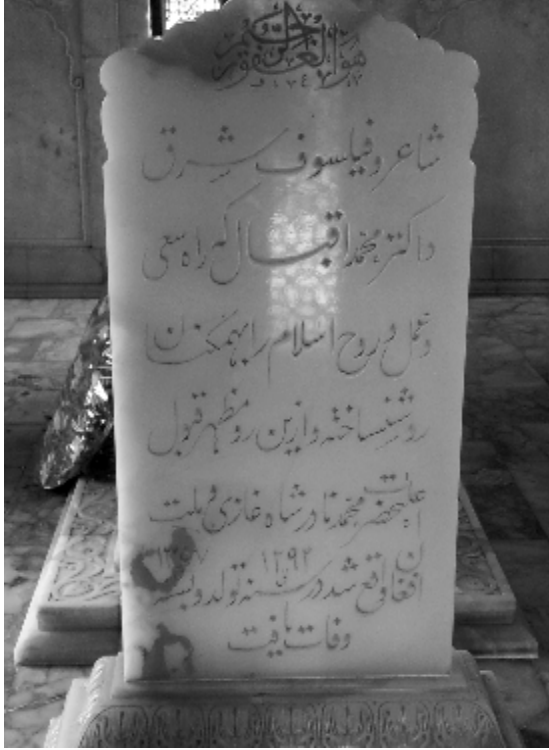 هو الغفور الرحیم
شاعر و فیلسوف شرق
داکتر محمد اقبال که راه سعی
و عمل و روح اسلام را بهمکنان
روشن ساخته و ازین رو مظهر قبول
اعلیحضرت محمد نادر شاه غازی و ملت
افغان واقع شد در سنه ۱۲۹۴ تولد و بسنه ۱۳۵۷
وفات یافت